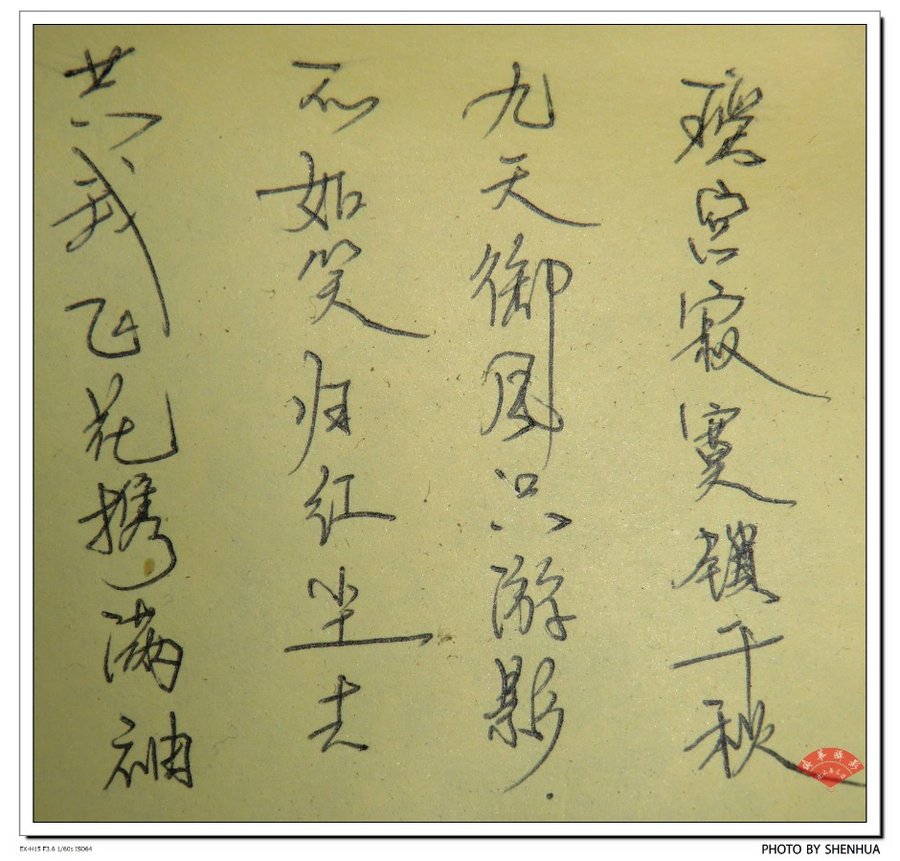 瓊宫寂寞锁千秋
九天御风只游影
不如笑归红尘去
共我飞花携满袖
F3.6 1/60s ISO64
PHOTO BY SHENHUA